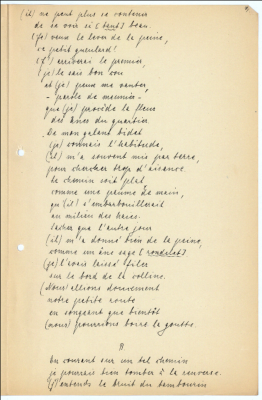 (il) ne peut plus se contenir
de se voir si (tant) beau.
(Je) veux le lever de la peine,
ce petit gueulard!
(J') arriverai le premier,
(je) le sais bon cou
et (je) peux me vanter,
- parole de meunier -
que (je) possède la fleur
des ânes du quartier.
Ce mon galant bidet
(je) connais l'habitude,
(il) m'a souvent mis par terre,
pour chercher trop d'aisance.
Le chemin soit plat
comme une paume de main,
qu'(il) s'embarbouillerait
au milieu des haies.
l'autre jour
(il) m'a donné bien de la peine,
comme un âne sage (rondelet)
(je) l'avais laissé filer
sur le bord de la colline.
(Nous) allions doucement
notre petite route
en songeant que bientôt
(nous) pourrions boire la goutte.
En courant sur un tel chemin
je pourrais bien tomber à la renverse.
(J')entends le bruit du tambourin